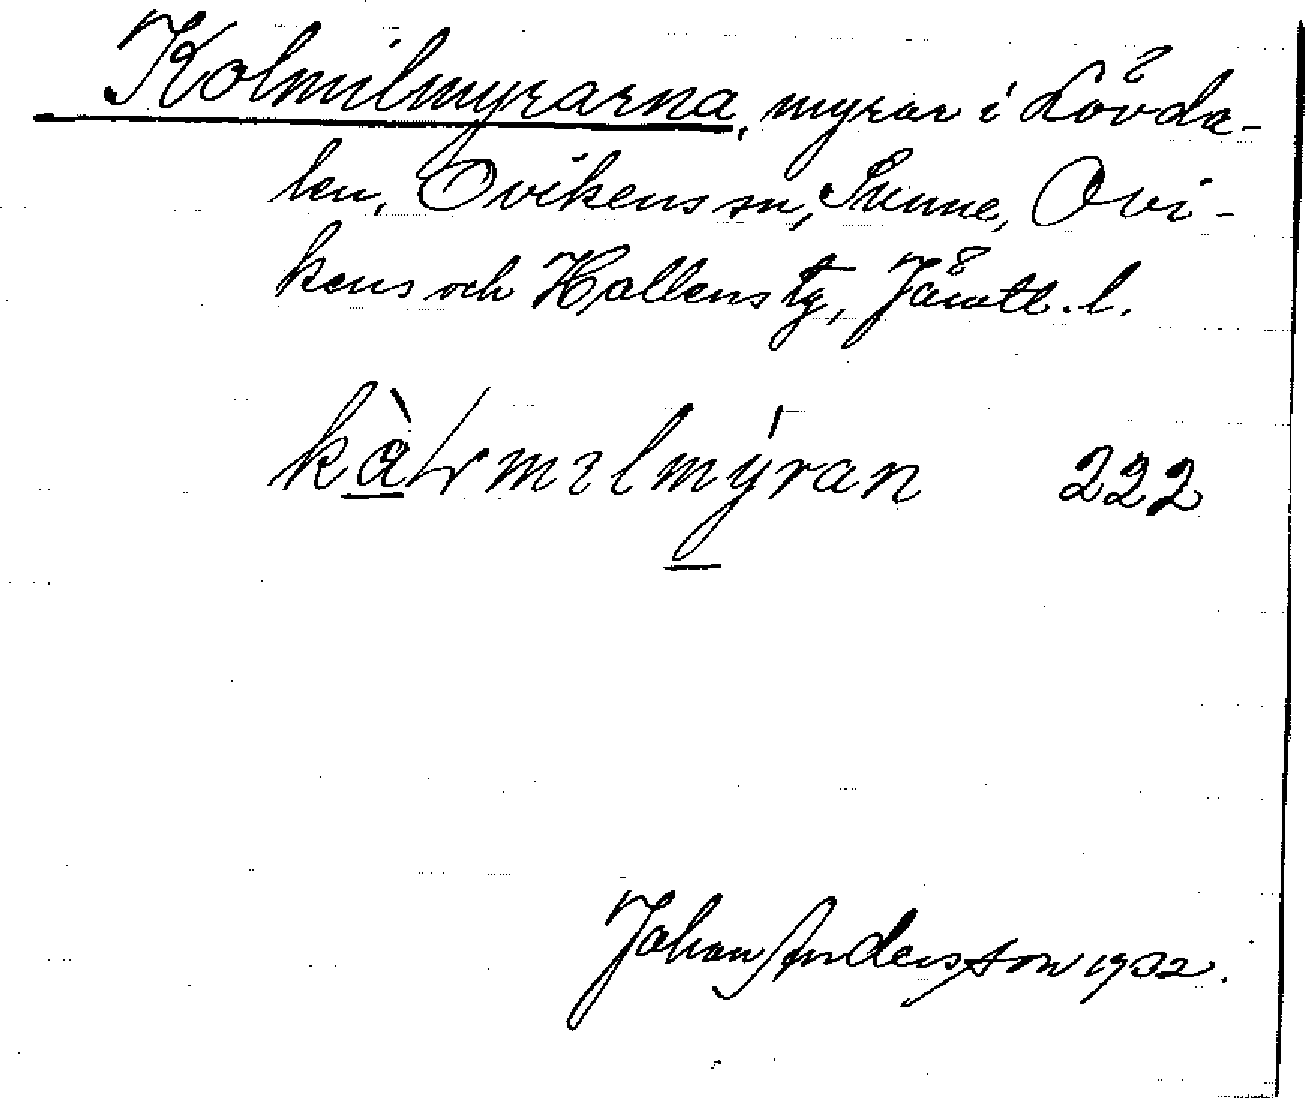 Kolmilmyrarna, myrar i Lövda-
len, Ovikens sn, Sunne, Ovi-
kens och Hallens tg, Jämtl. l.
222
Johan Andersson 1932.